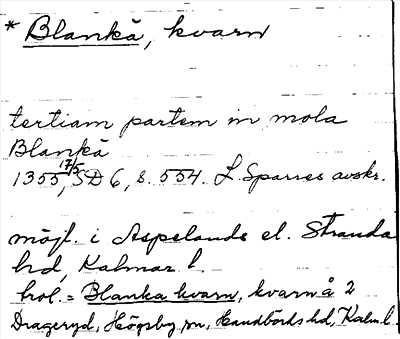 * Blankå, kvarn
tertiam partem in mola
Blankå
1355 17/5, SD 6, s. 554. L. Sparres avskr.
möjl. i Aspelands el. Stranda
hd, Kalmar l.
hol. = Blanka kvarn, kvarn å 2
Drageryd, Högsby sn, Handbörds hd, Kalm. l.